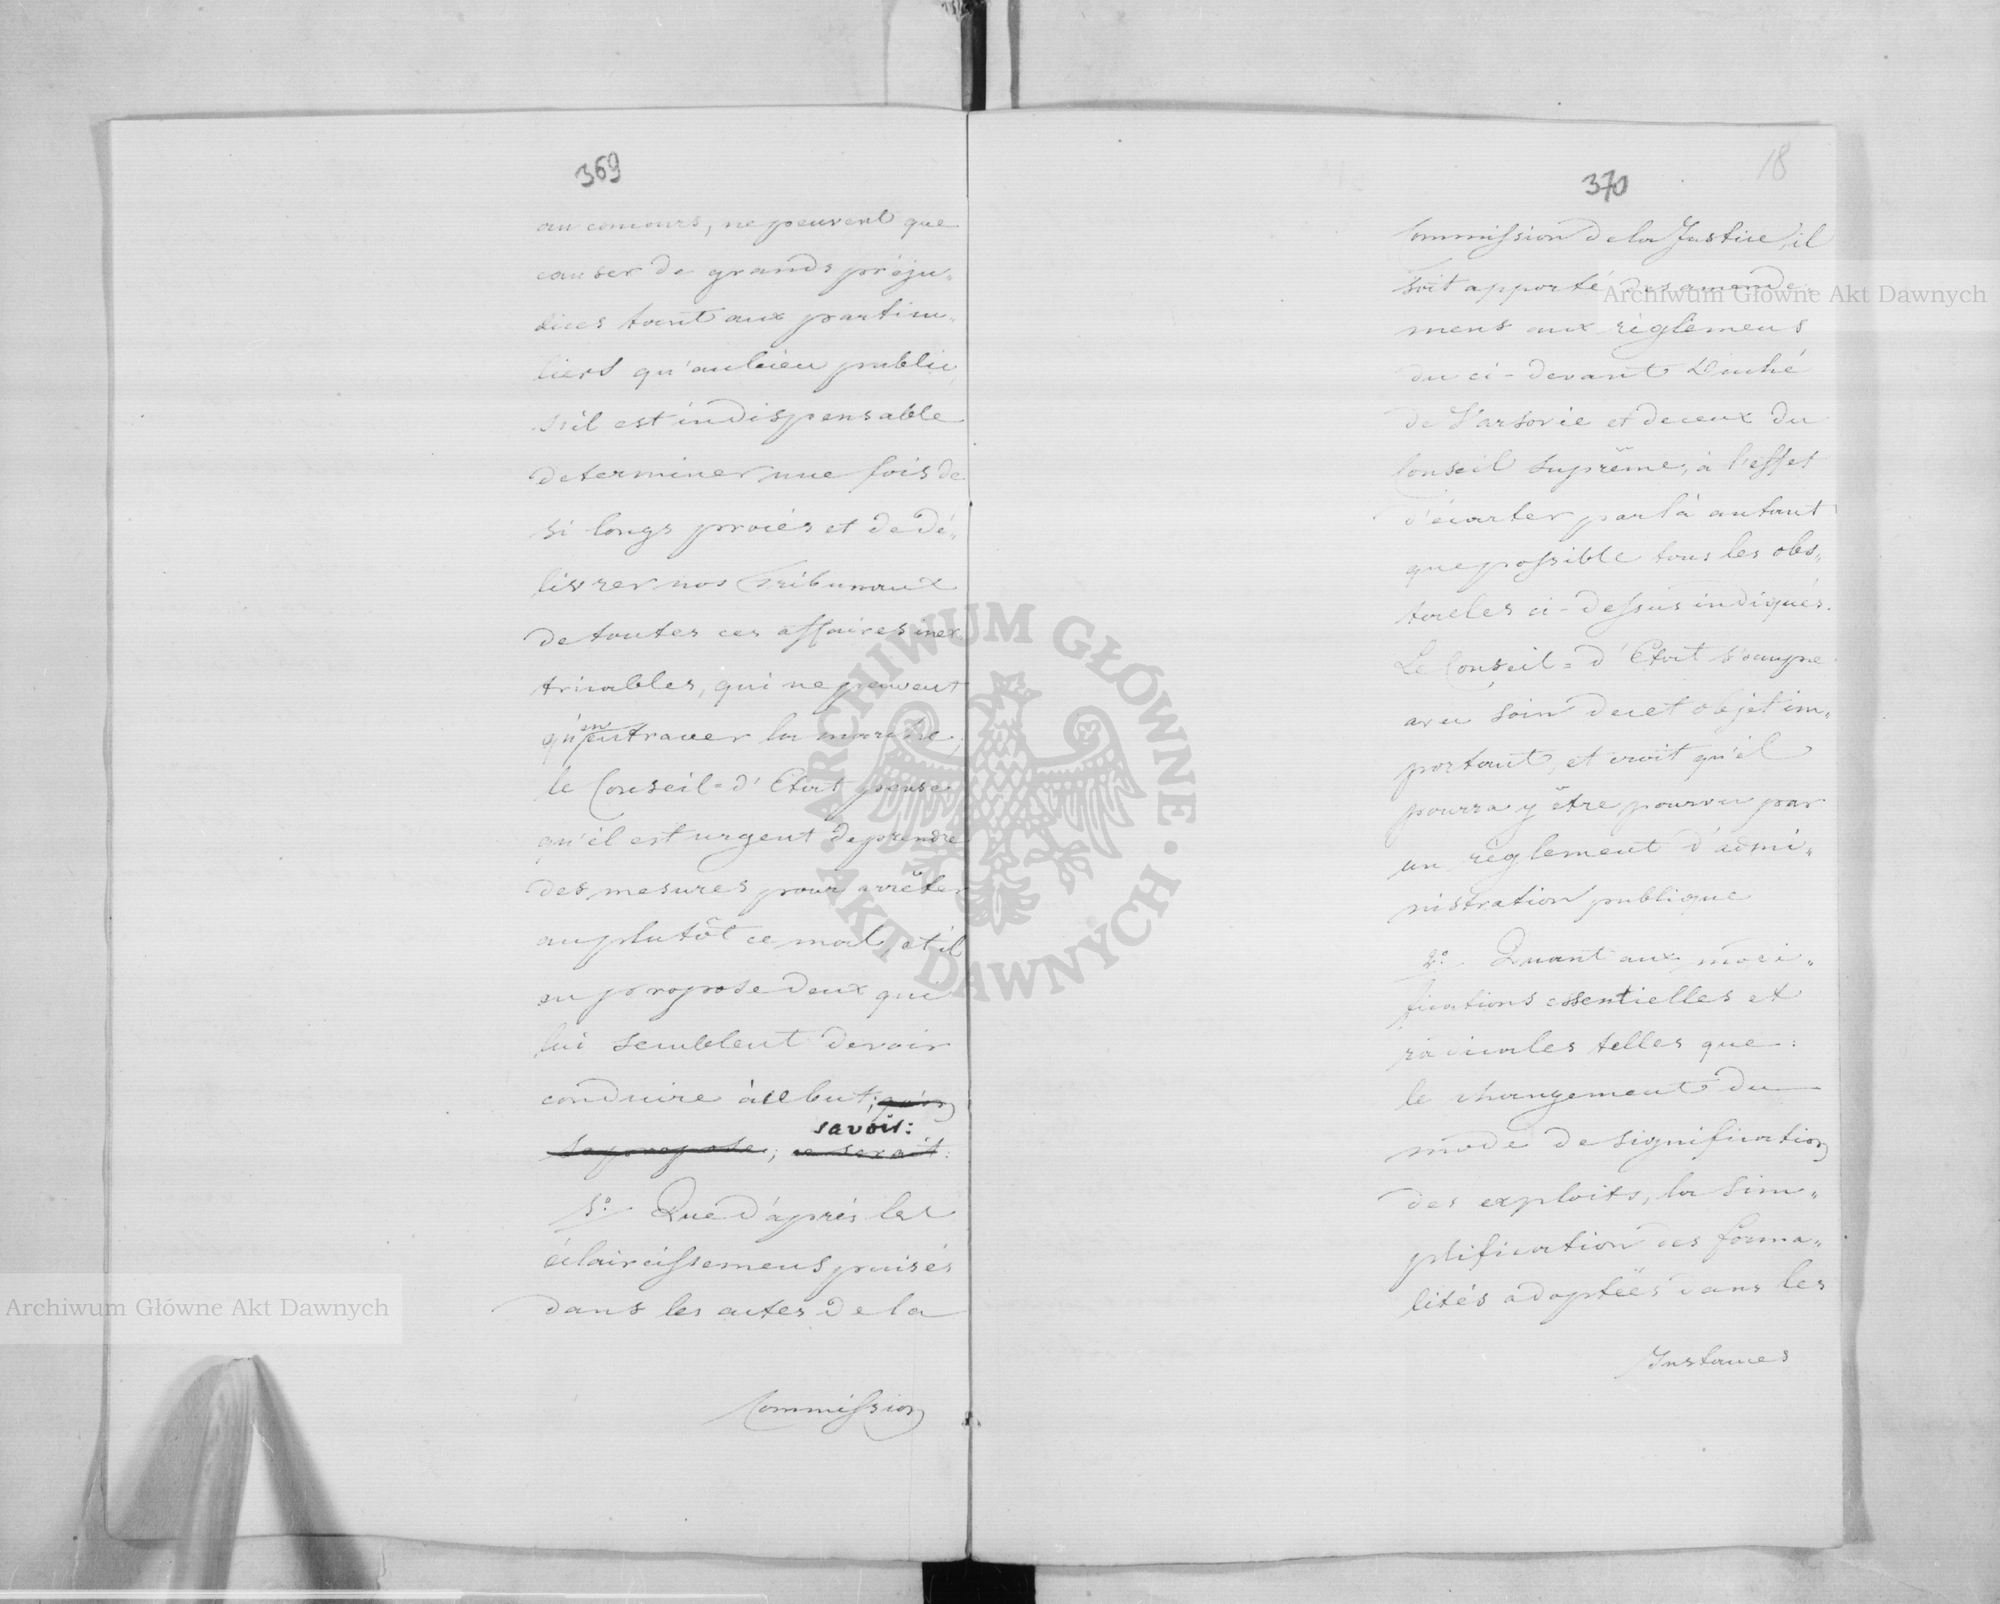 369
au concours, ne peuvent que
causer de grands préju„
dices tant aux particu„
liers qu'au bien public,
s'il est indispensable
determiner une fois de
si longs procés et de dé„
livrer nos Tribunaux
de toutes ces affaires inex
tricables, qui ne peuvent
qu'en entraver la marche,
le Conseil=d'Etat pense
qu'il est urgent de prendre
des mesures pour arrêter
au plutôt ce mal, et il
en propose deux qui
lui semblent devoir
conduire à ce but;
savoir:
se propose; ce serait:
1.° Que d'après les
éclaircissemens puisés
dans les actes de la
Commission
18
370
Commission de la Justice, il
soit apporté des amende„
mens aux règlemens
du ci-devant Duché
de Varsovie et de ceux du
Conseil Suprême, à l'effet
d'écarter par là autant
que possible tous les obs„
tacles ci-dessus indiqués.
Le Conseil=d'Etat s'occupe
avec soin de cet objet im„
portant, et croit qu'il
pourra y être pourvu par
un règlement d'admi„
nistration publique
2.° Quant aux modi„
fications essentielles et
radicales telles que:
le changement du
mode de signification
des exploits, la sim„
plification des forma„
lités adoptées dans les
Instances
Archiwum Główne Akt Dawnych
Archiwum Główne Akt Dawnych
ARCHIWUM GŁÓWNE
· AKT DAWNYCH ·